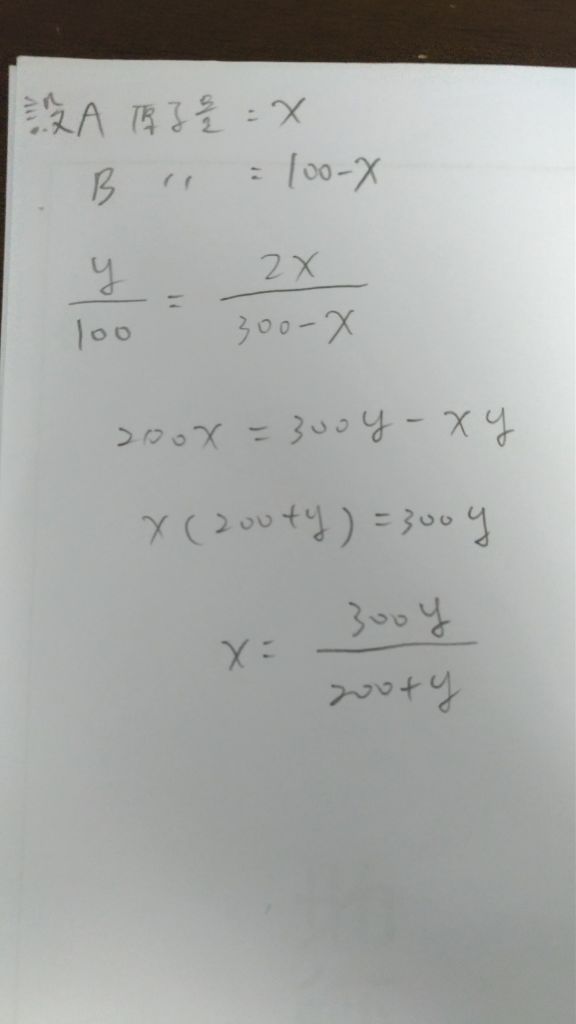 設A 原子量 = x
B 〃 = 100-x
y/100 = 2x/(300-x)
200x = 300y - xy
x(200+y) = 300y
x = 300y/(200+y)